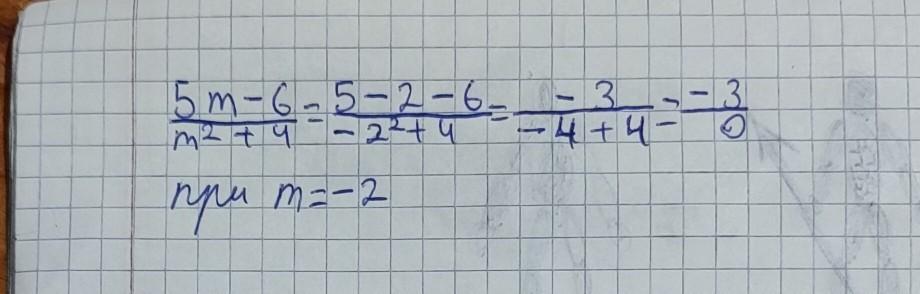 5m-6/m²+4 = 5-2-6/-2²+4 = -3/-4+4 = -3/0
при m=-2